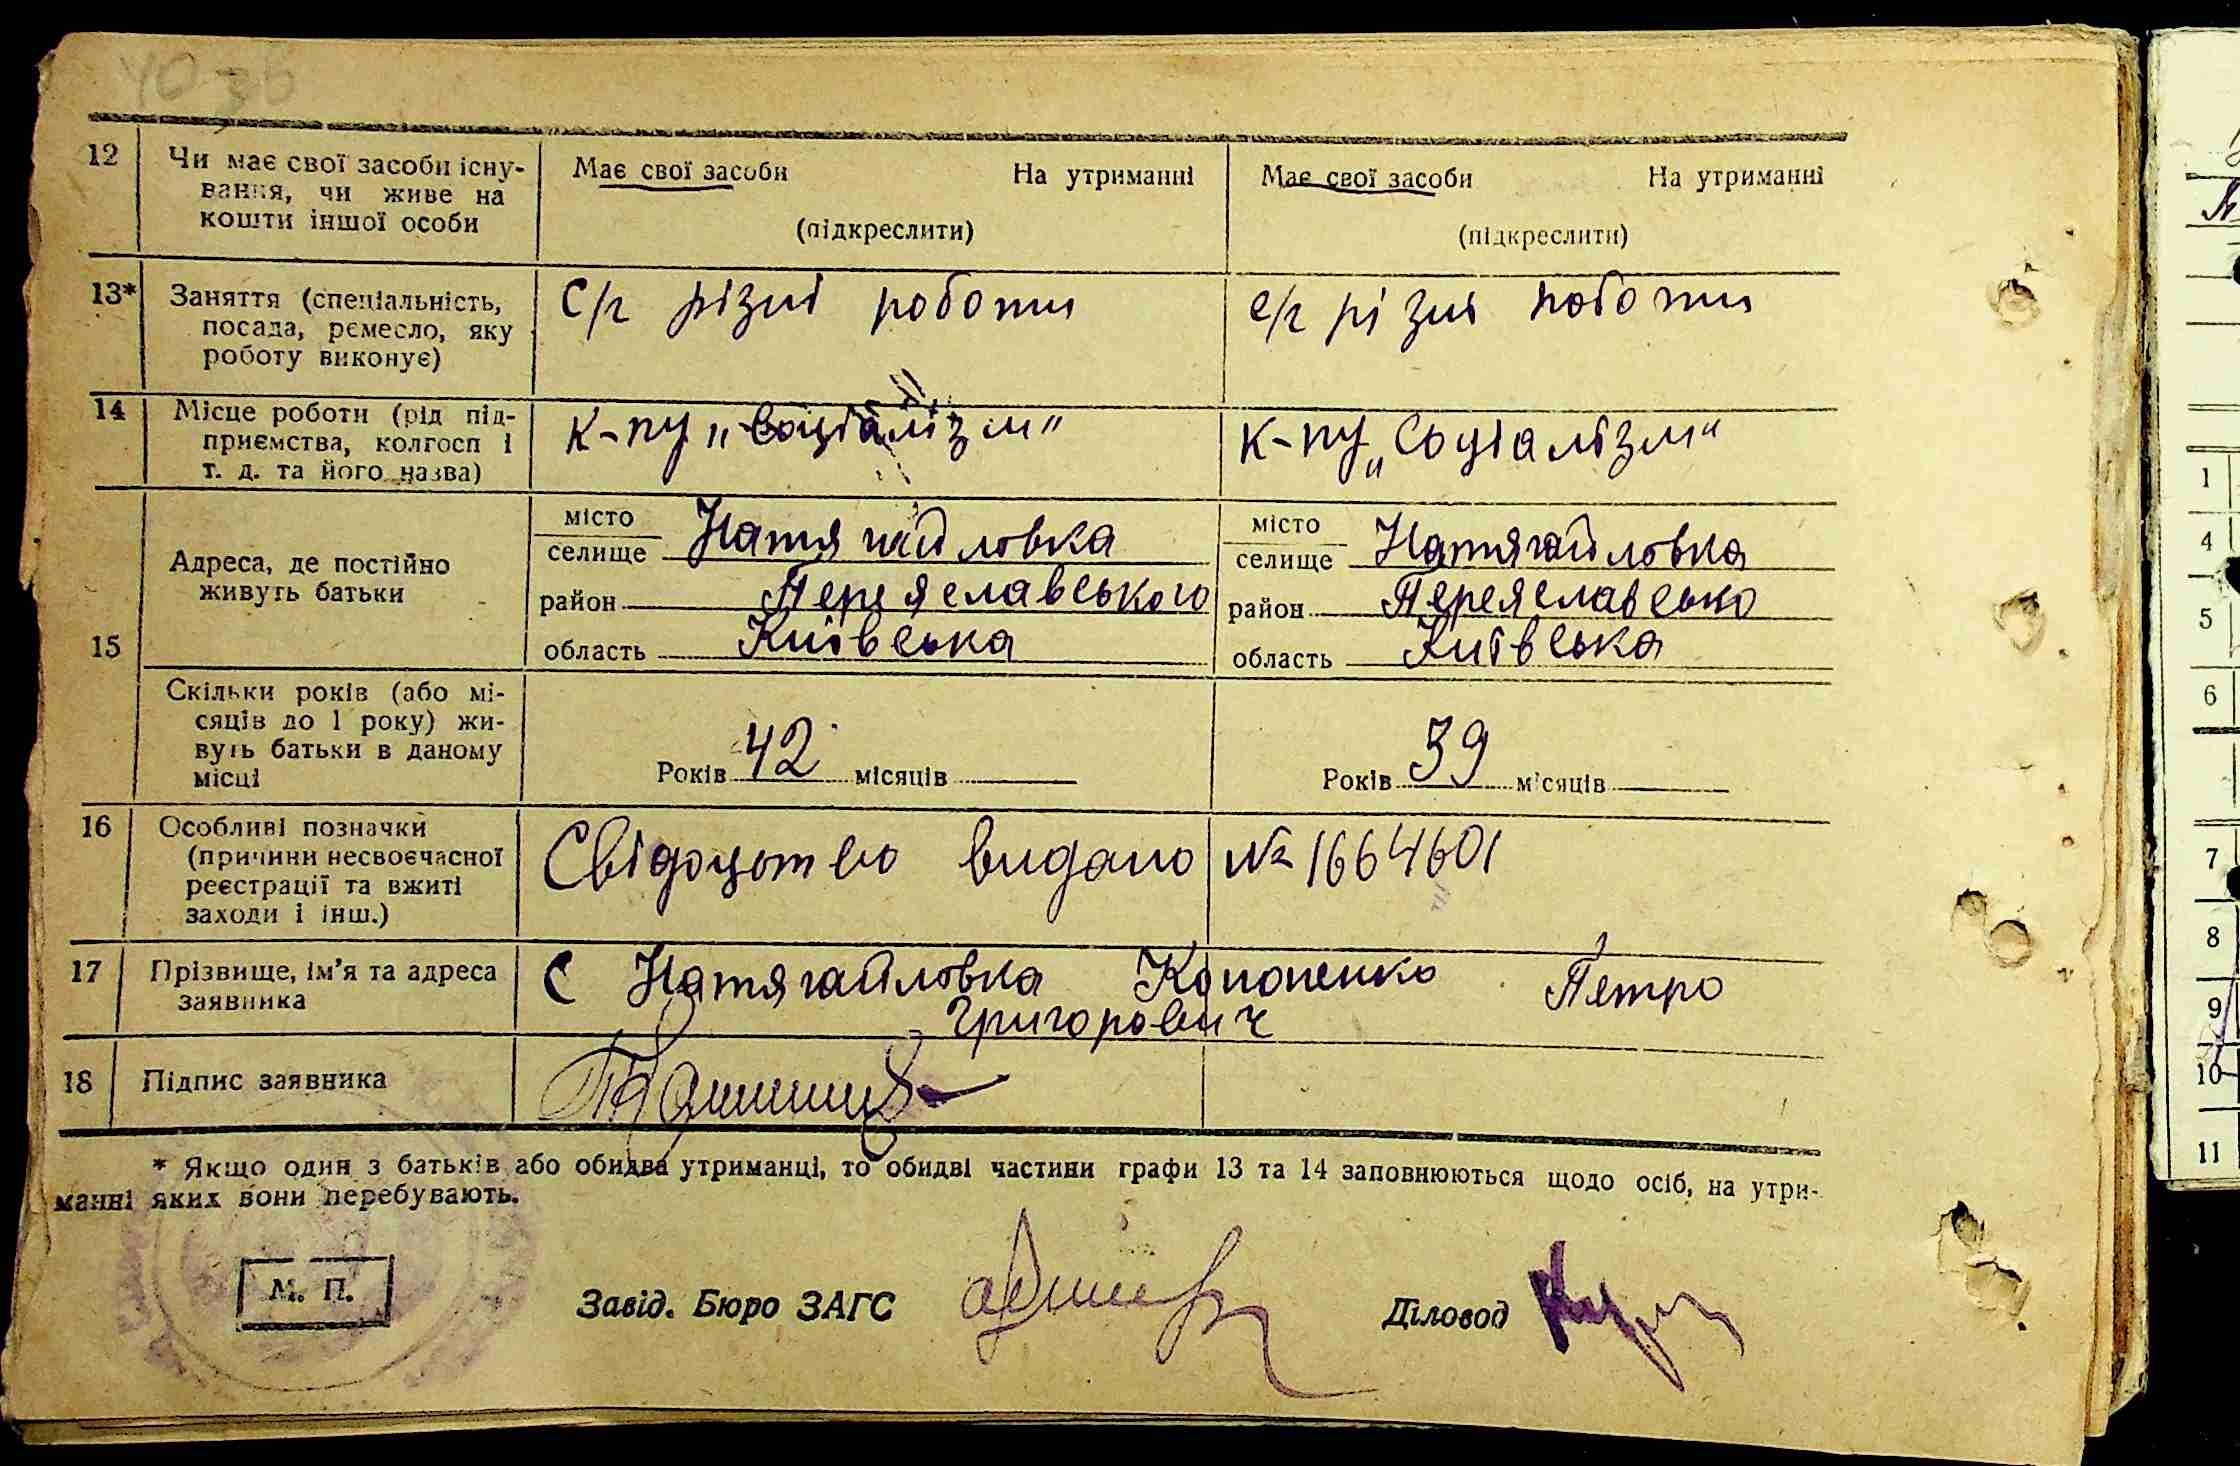 40 зв
12 Чи має свої засоби існу- Має свої засоби На утриманні Має свої засоби На утриманні
вання, чи живе на
кошти іншої особи (підкреслити) (підкреслити)
13* Заняття (спеціальність, С/г різні роботи с/г різні роботи
посада, ремесло, яку
роботу виконує)
14 Місце роботи (рід під- К-пу „Соціалізм" К-пу „Соціалізм"
приємства, колгосп і
т. д. та його назва)
15 Адреса, де постійно
живуть батьки
місто
селище Натягайловка
район Переяславського
область Київська
місто
селище Натягайловка
район Переяславсько
область Київська
Скільки років (або мі-
сяців до 1 року) жи-
вуть батьки в даному
місці
Років 42 місяців
Років 39 місяців
16 Особливі позначки Свідоцтво видано № 1664601
(причини несвоєчасної
реєстрації та вжиті
заходи і інш.)
17 Прізвище, ім'я та адреса С Натягайловка Кононенко Петро
заявника Григорович
18 Підпис заявника
* Якщо один з батьків або обидва утриманці, то обидві частини графи 13 та 14 заповнюються щодо осіб, на утри-
манні яких вони перебувають.
М. П.
Завід. Бюро ЗАГС Діловод
1
4
5
6
7
8
9
10
11